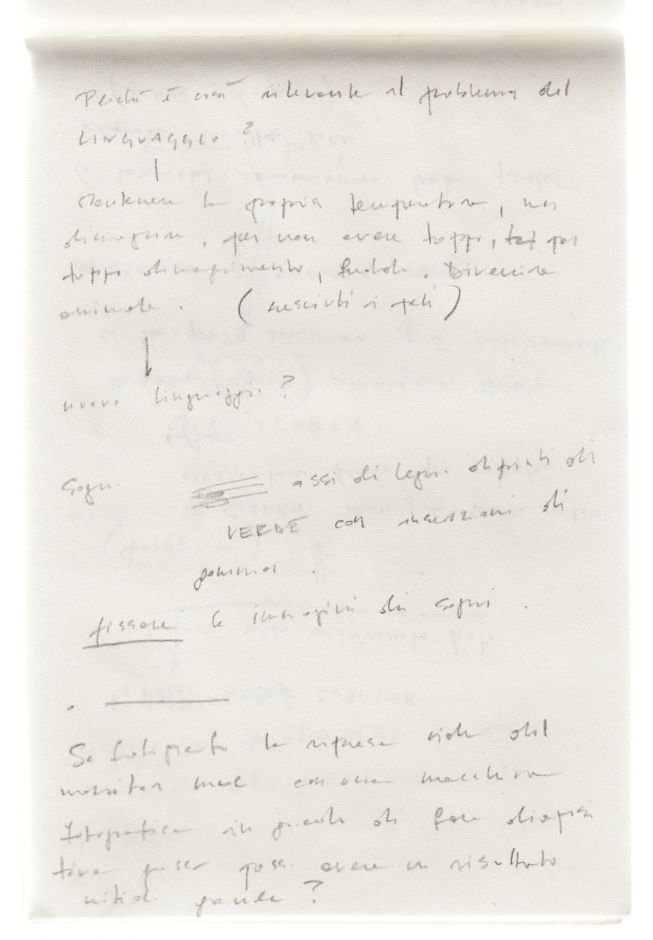 Perché è così rilevante il problema del
LINGUAGGIO?
mantenere la propria temperatura, non
per non avere troppo, per
troppo dimagrimento, freddo. Divenire
animale. (cresciuti i peli)
nuovo linguaggio?
Sogni. assi di legno dipinti di
VERDE con inserzioni di
gomma.
fissare le immagini dei sogni.
Se fotografo la ripresa video del
monitor mac con una macchina
fotografica in grado di fare diaposi
tive posso avere un risultato
nitido grande?